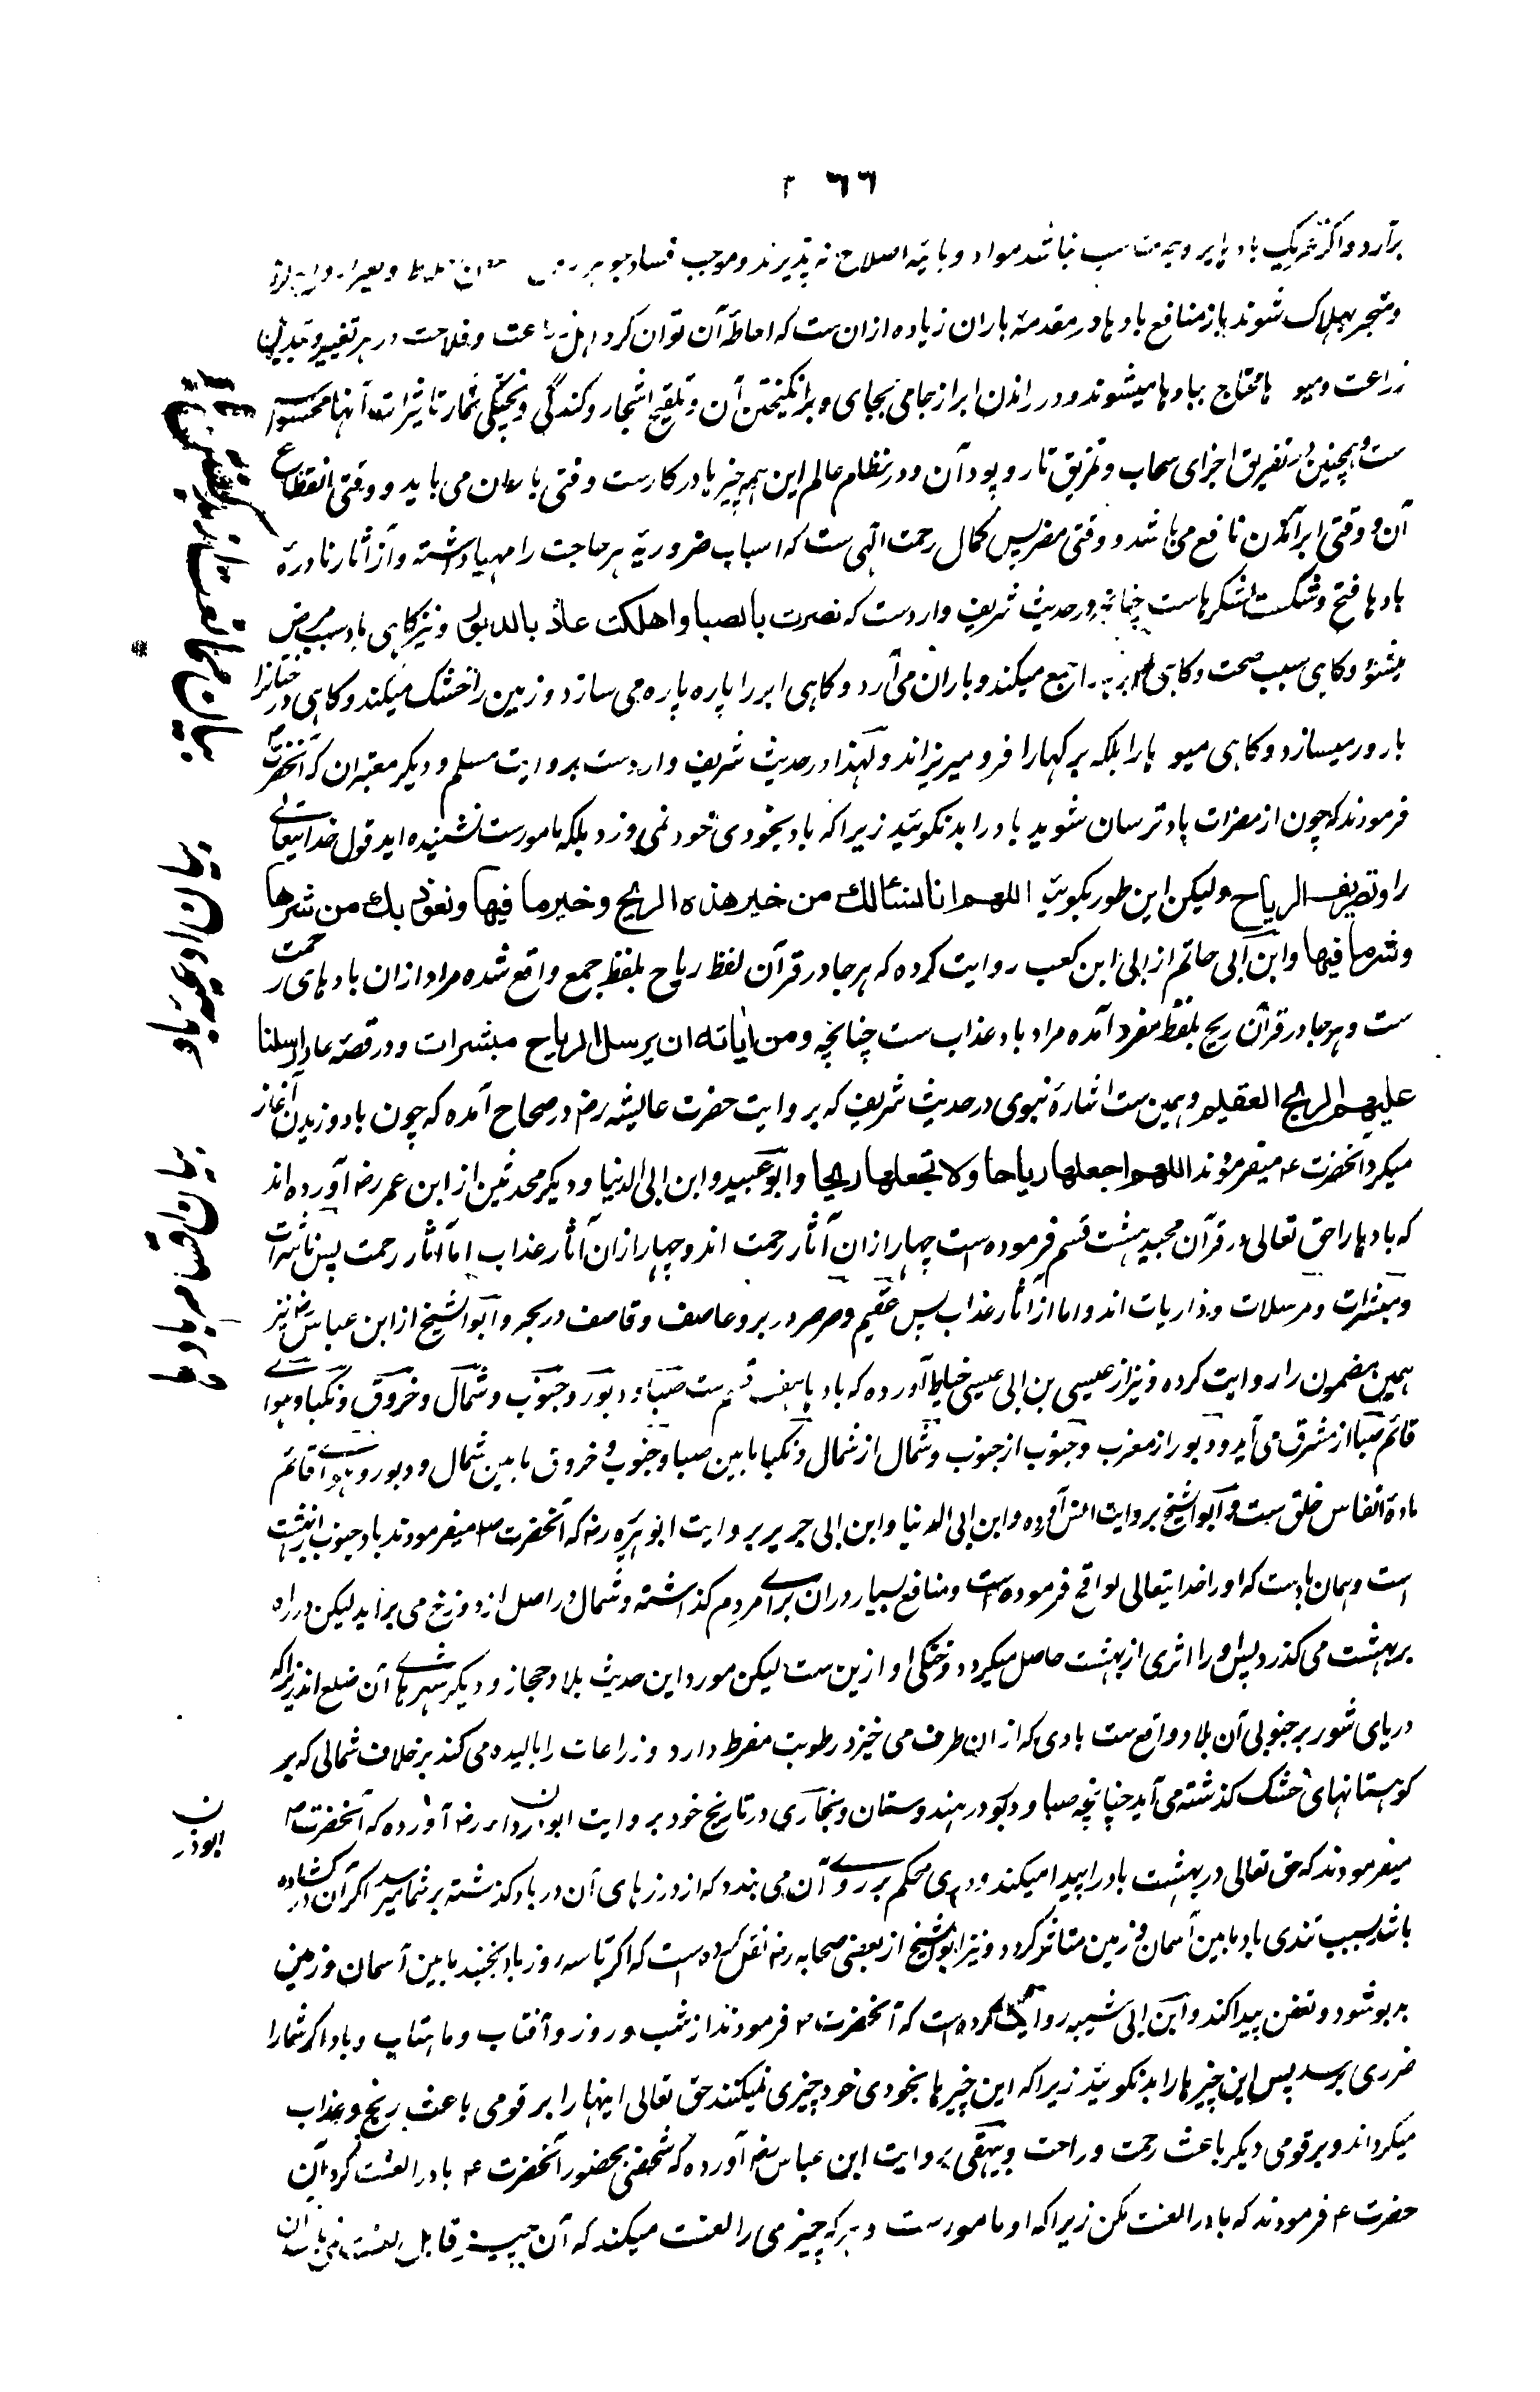 ۲۶۶
برآرد و اگر شریک باد پا بر وجه مناسب نباشد مواد و بائیه اصلاح نه پذیرند و موجب فساد
و منجر بهلاک شوند باز منافع بادها در مقدمهٔ باران زیاده از ان ست که احاطهٔ آن توان کرد اهل زراعت و فلاحت در هر تغییر و تبدیل
زراعت و میوه‌ها محتاج ببادها میشوند و در راندن ابر از جامی بجای و برانگیختن آن و تلقیح اشجار و کندگی و پختگی ثمار تاثیرات آنها محسوس
ست و همچنین در تفریق اجزای سحاب و تمزیق تار و پود آن و در نظام عالم این همه چیزها در کارست وقتی باران می باید و وقتی انقطاع
آن و وقتی ابر آمدن نافع می باشد و وقتی مضر پس کمال رحمت الٰهی ست که اسباب ضروریهٔ هر حاجت را مهیا داشته و از آثار نادرهٔ
بادها فتح و شکست لشکرهاست چنانچه در حدیث شریف واردست که نصرت بالصبا و اهلکت عاد بالدبور و نیز گاهی باد سبب مرض
میشود و گاهی سبب صحت و گاهی ابر را جمع میکند و باران می آرد و گاهی ابر را پاره پاره می سازد و زمین را خشک میکند و گاهی درختانرا
بارور میسازد و گاهی میوه‌ها را بلکه برگهارا فرو میریزاند و لهذا در حدیث شریف واردست بروایت مسلم و دیگر معتبران که آنحضرت ص
فرمودند که چون از مضرات باد ترسان شوید باد را بد نگوئید زیرا که باد بخودی خود نمی وزد بلکه مامورست نشنیده اید قول خدایتعالے
را و تصریف الریاح ولیکن این طور بگوئید اللهم انا نسئالك من خیر هذه الریح و خیر ما فیها و نعوذ بك من شرها
و شر ما فیها و ابن ابی حاتم از ابی ابن کعب روایت کرده که هر جا در قرآن لفظ ریاح بلفظ جمع واقع شده مراد از ان بادهای رحمت
ست و هر جا در قرآن ریح بلفظ مفرد آمده مراد باد عذاب ست چنانچه و من اٰیاته ان یرسل الریاح مبشرات و در قصهٔ عاد ارسلنا
علیهم الریح العقیم و همین ست اشارهٔ نبوی در حدیث شریف که بروایت حضرت عائشه رض در صحاح آمده که چون باد وزیدن آغاز
میکرد آنحضرت ع میفرمودند اللهم اجعلها ریاحا ولا تجعلها ریحا و ابو عبید و ابن ابی الدنیا و دیگر محدثین از ابن عمر رض آورده اند
که بادها را حق تعالی در قرآن مجید هشت قسم فرموده است چهار از ان آثار رحمت اند و چهار از ان آثار عذاب اما آثار رحمت پس ناشرات
و مبشرات و مرسلات و ذاریات اند و اما از آثار عذاب پس عقیم و صرصر در بر و عاصف و قاصف در بحر و ابو الشیخ از ابن عباس رض نیز
همین مضمون را روایت کرده و نیز از عیسی بن ابی عیسی خیاط آورده که بادها هفت قسم ست صبا و دبور و جنوب و شمال و خروق و نکبا و هواے
قائم صبا از مشرق می آید و دبور از مغرب و جنوب از جنوب و شمال از شمال و نکبا مابین صبا و جنوب و خروق مابین شمال و دبور و هواے قائم
مادهٔ انفاس خلق ست و ابو الشیخ بروایت انس آورده و ابن ابی الدنیا و ابن ابی جریر بروایت ابو هریره رض که آنحضرت ص میفرمودند باد جنوب از بهشت
است و همان بادست که او را خدایتعالی لواقح فرموده است و منافع بسیار دران براے مردم گذاشته و شمال در اصل از دوزخ می برآید لیکن در راه
بر بهشت می گذرد پس او را اثری از بهشت حاصل میگردد و خنکی او ازین ست لیکن مورد این حدیث بلاد حجاز و دیگر شهرهاے آن ضلع اند زیرا که
دریای شور بر جنوبی آن بلاد واقع ست بادی که از ان طرف می خیزد رطوبت مفرط دارد و زراعات را بالیده می کند بر خلاف شمالی که بر
کوهستانهای خشک گذشته می آید چنانچه صبا و دبور در هندوستان و بخاری در تاریخ خود بروایت ابو درداء رض آورده که آنحضرت ص
میفرمودند که حق تعالی در بهشت باد را پیدا میکند و دری محکم بر روے آن می بندد که از درزهای آن در باد گذشته بر شما میرسد اگر آن در کشاده
باشد بسبب تندی باد مابین آسمان و زمین متاثر گردد و نیز ابو الشیخ از بعضی صحابه رض نقل کرده است که اگر تا سه روز باد نجنبد مابین آسمان و زمین
بد بو شود و تعفن پیدا کند و ابن ابی شیبه روایت کرده است که آنحضرت ص فرمودند از شب و روز و آفتاب و ماهتاب و باد اگر شما را
ضرری برسد پس این چیزها را بد نگوئید زیرا که این چیزها بخودی خود چیزی نمیکنند حق تعالی اینها را بر قومی باعث رنج و عذاب
میگرداند و بر قومی دیگر باعث رحمت و راحت و بیهقی بروایت ابن عباس رض آورده که شخصی بحضور آنحضرت ع باد را لعنت کرد آن
حضرت ع فرمودند که باد را لعنت مکن زیرا که او مامورست و هر که چیزی را لعنت میکند که آن چیز قابل لعنت نمی باشد
بیان ادعیه باد
بیان اقسام بادها
ن
ابوذر